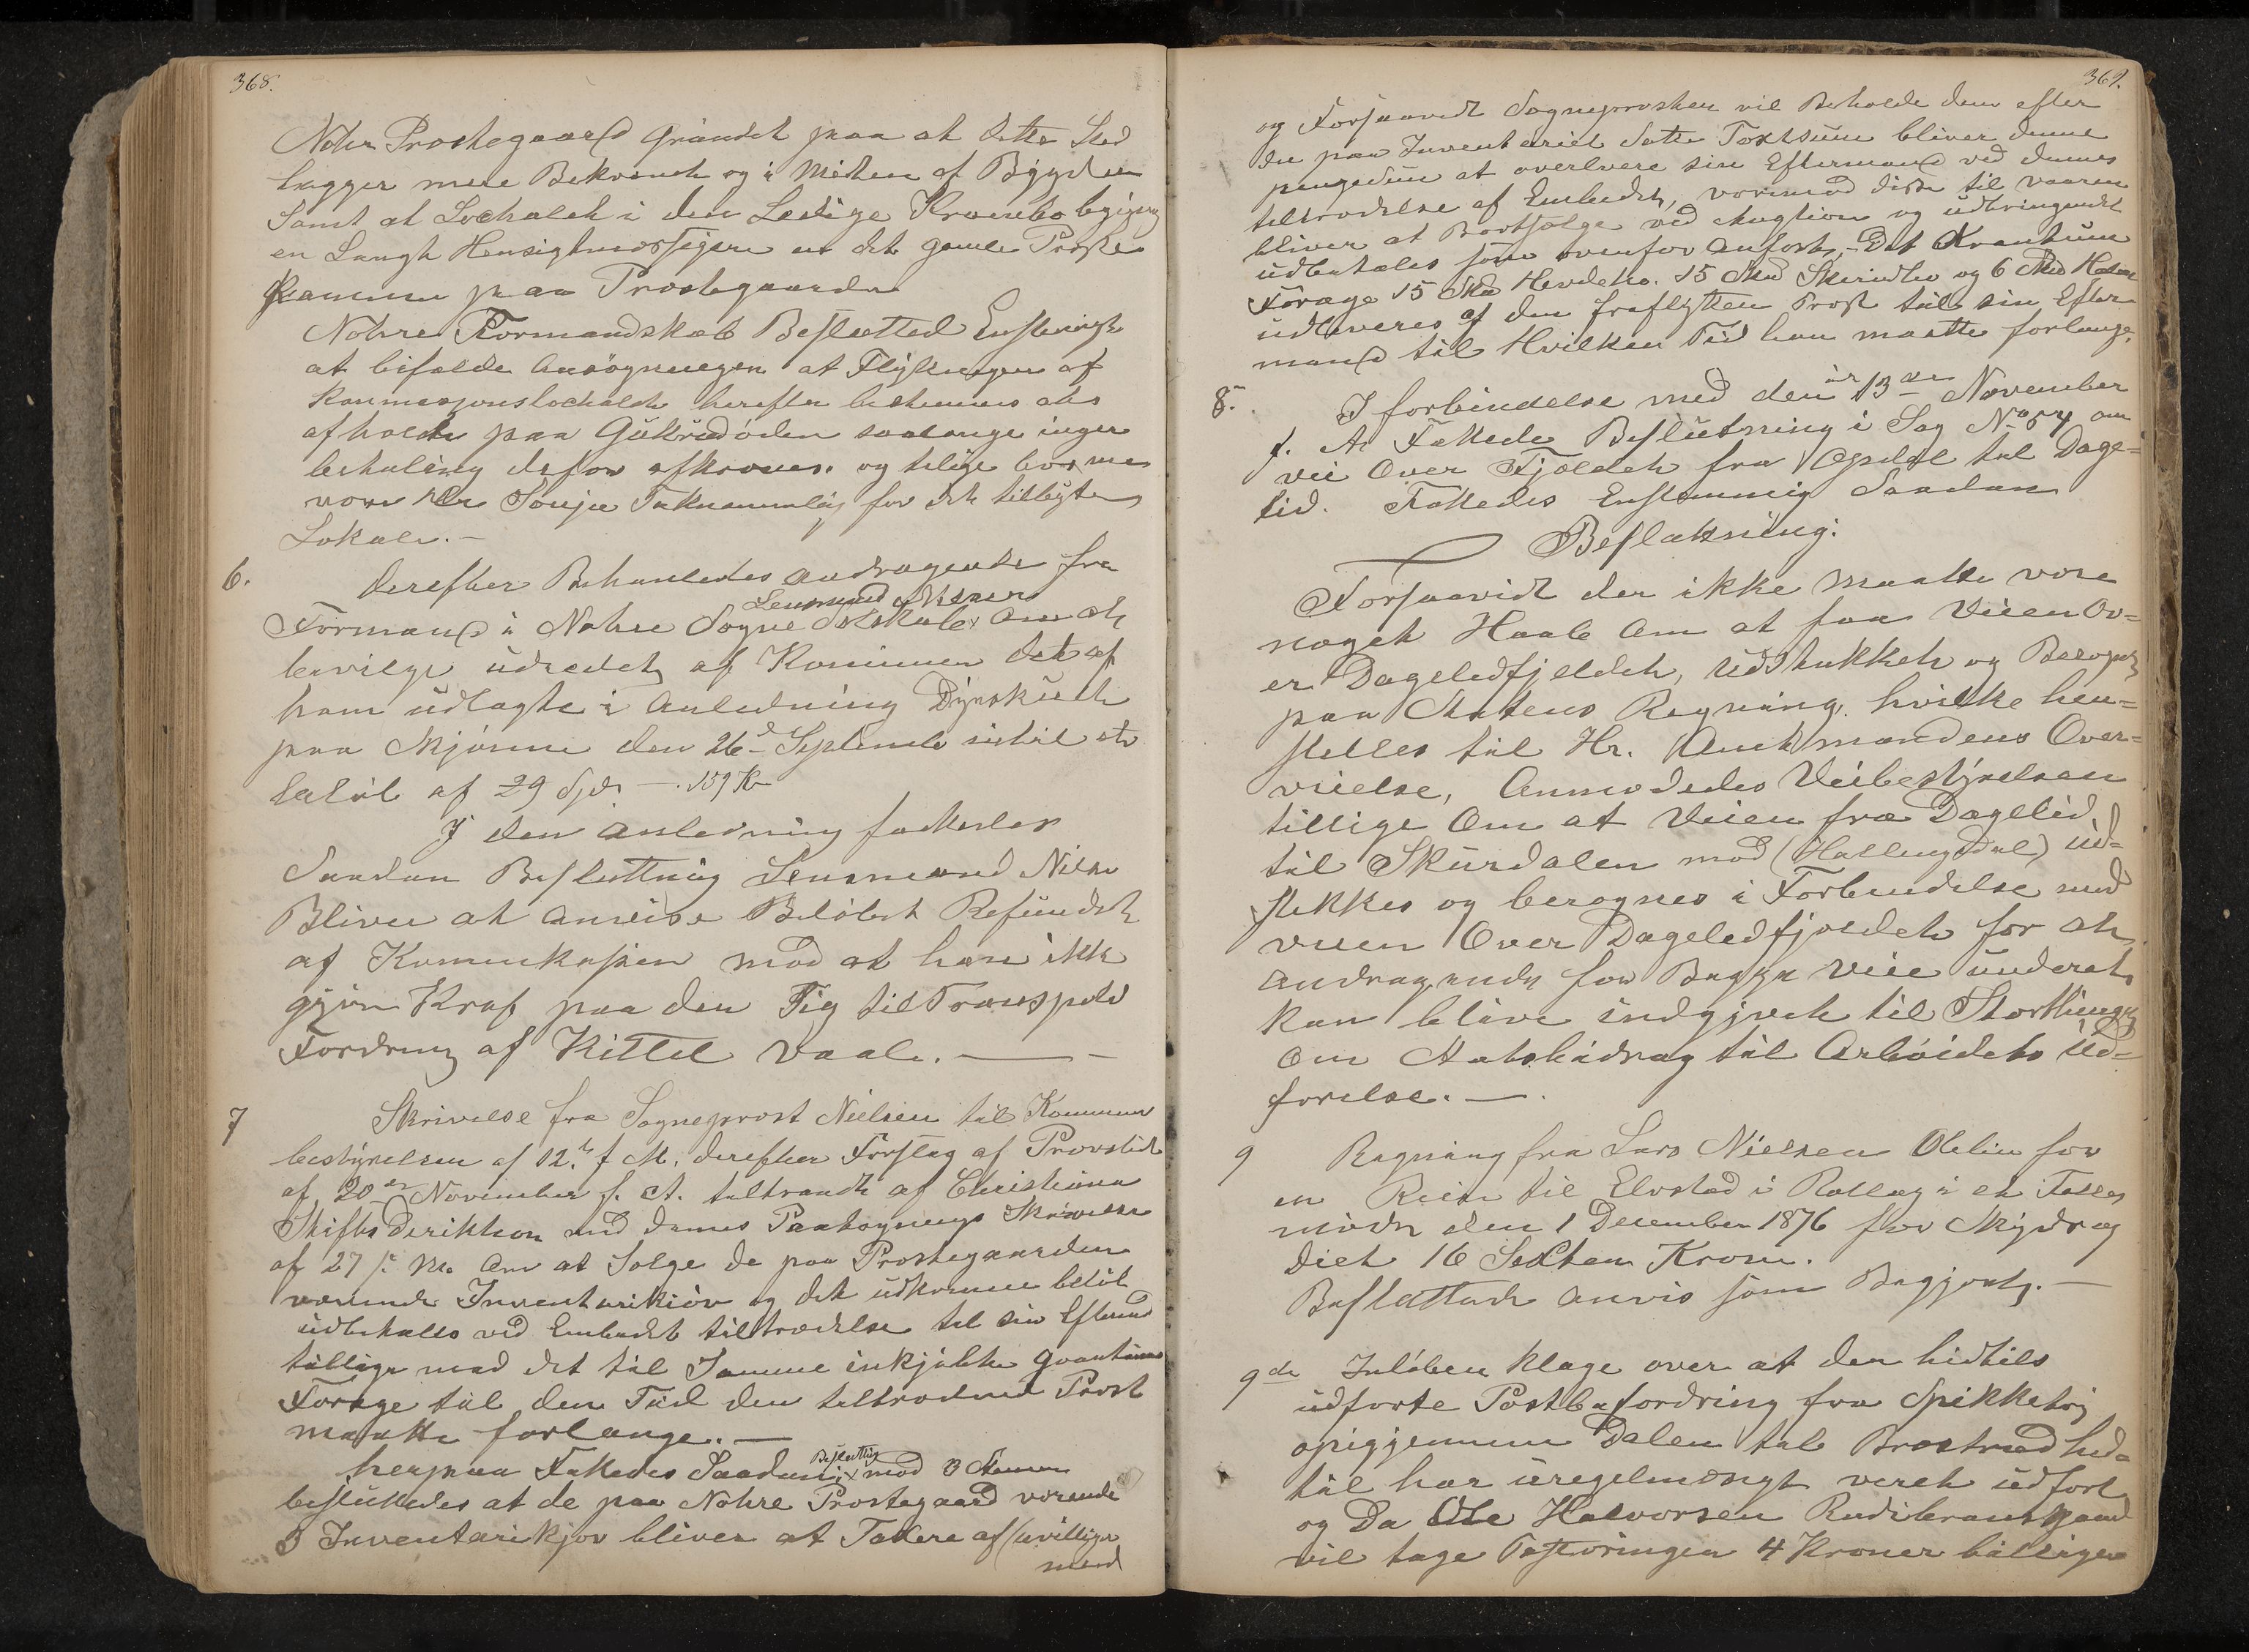 368.
Nohre Prostegaard Grundet paa at dette Sted
lagger mere Bekvemt og i Midten af Bygden
Samt at Lochalet i den Ledige Krambobygjng
en Langt Hensigtmæsigere en det gamle Presse
kammer paa Prostegaarden
Nohre Formandskab Beslutted Enstemigt
at bifalde Ansögningen at Flytningen af
Kommisjonslochalet herefter bestemmes ats
afholdt paa Gulsrudöden saalange ingen
betaling derfor afkræves. og tilige bevismes
vor Hr Tonje Taknemmlig for det tilbyte
Lokale. —
6. Derefter Behanledes andragende fra
Lensmand Nilsen
Formand i Nohre Sogne Selskab x om at
bevilge udredet af Kommunen det af
ham udlagte i Anledning Dyrskuet
paa Skjönne den 26d September indtil et
Belöb af 29 Spd — 159 Kr
I den anledning fattedes
Saadan Besluttning Lensmand Nilsen
Bliver at anvise Belöbet Refundert
af Kommunekassen mod at han ikke
gjör Kraf paa den Tig til Transpord
Fordring af Kittel Vaale. —
7 Skrivelse fra Sogneprost Nielsen til Kommune
bestyrelsen af 12.te f M. derefter Forslag af Provstiet
af 20de November f. A. tiltraadt af Christiania
Stifts Deriktion med dennes Paategnings Skrivelse
af 27 s. M. om at Solge de paa Prostegaarden
værende Inventarikiör og det udkomne belöb
udbetalles ved Embedet tiltrædelse til sin Eftermd
tillige med det til Samme inkjöbte Qvantum
Forage til den Tid den tiltrædende Prost
maatte forlange. —
Besluttnig
herpaa Fattedes Saadan x mod 3 Stemmer
besluttedes at de paa Nohre Prostegaard værende
3 Inventarikjör bliver at Taxere af uvillige
mend
369.
og Forsaavidt Sogneprosten vil Beholde dem efter
den paa Inventariet Satte Taxtsum bliver denne
pengesum at overlvere sin Eftermand ved dennes
tiltrædelse af Embedet, vorimod disse til vaaren
bliver at Bortsælge ved Augtion og udbringendet
udbetales som ovenfor anfort, — Det Kvantum
Forage 15 Skd Hevdeho. 15 Skd Skeiredho og 6 Skd Halm
udleveres af den fraflyttende Prost til sin Efter
mand til Hvilken Tid han maatte forlange.
8. I forbindelse med den 13de November
f. A. Fattede Beslutning i Sag No 54 om
vei Over Fjeldet fra Opdal til Dage=
lid. Fattedes Enstemmig Saadan
Beslutning:
Forsaavidt der ikke maatte være
noget Haab om at faa Veien Ov=
er Dagelidfjeldet, Udstukket og Beregnet
paa Statens Regning. hvilke hen=
stilles til Hr. Amtmandens Over=
vielse, Anmodedes Veibestyrelsen
tillige Om at Veien fra Dagelid
til Skurdalen mod (Hallingdal) ud=
stikkes og beregnes i Forbindelse med
veien Over Dagelidfjeldet for at
andragende for Begge Veie underet
kan blive indgivet til Storthinget
Om Statsbidrag til Arbeidets Ud=
förelse. —
9 Regning fra Lars Nielsen Eblin for
en Reise til Elvstad i Rollag i et Felles
möde den 1 December 1876 for Skyds og
Diet 16 Sexten Kroner.
Besluttede anvis som Begjært. —
9de Indlöben klage over at den hidtils
udforte Postbefordring fra Spikkehöi
opigjennem Dalen til Brostrud hid=
til har uregelmæsigt veret udfort
og Da Ole Halvorsen Rudibraatgaard
vil tage Postföringen 4 Kroner billigere